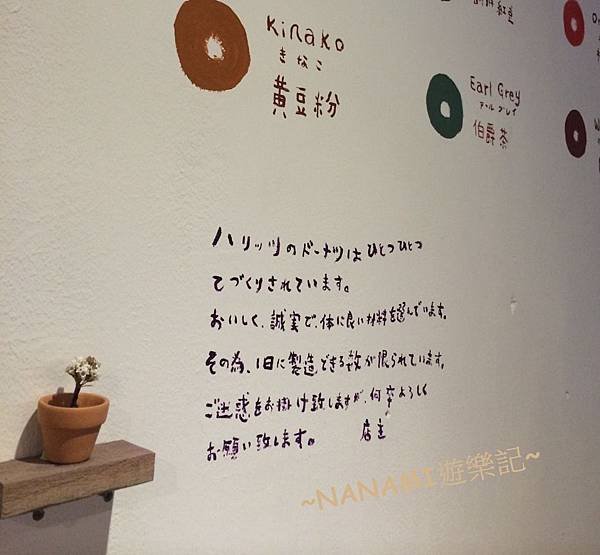 Kinako
きなこ
黄豆粉
Earl Grey
アールグレイ
伯爵茶
ハリッツのドーナツはひとつひとつ
てづくりされています。
おいしく、誠実で、体に良い材料を選んでいます。
その為、1日に製造できる数が限られています。
ご迷惑をお掛け致しますが、何卒よろしく
お願い致します。 店主
~NANAMI遊樂記~